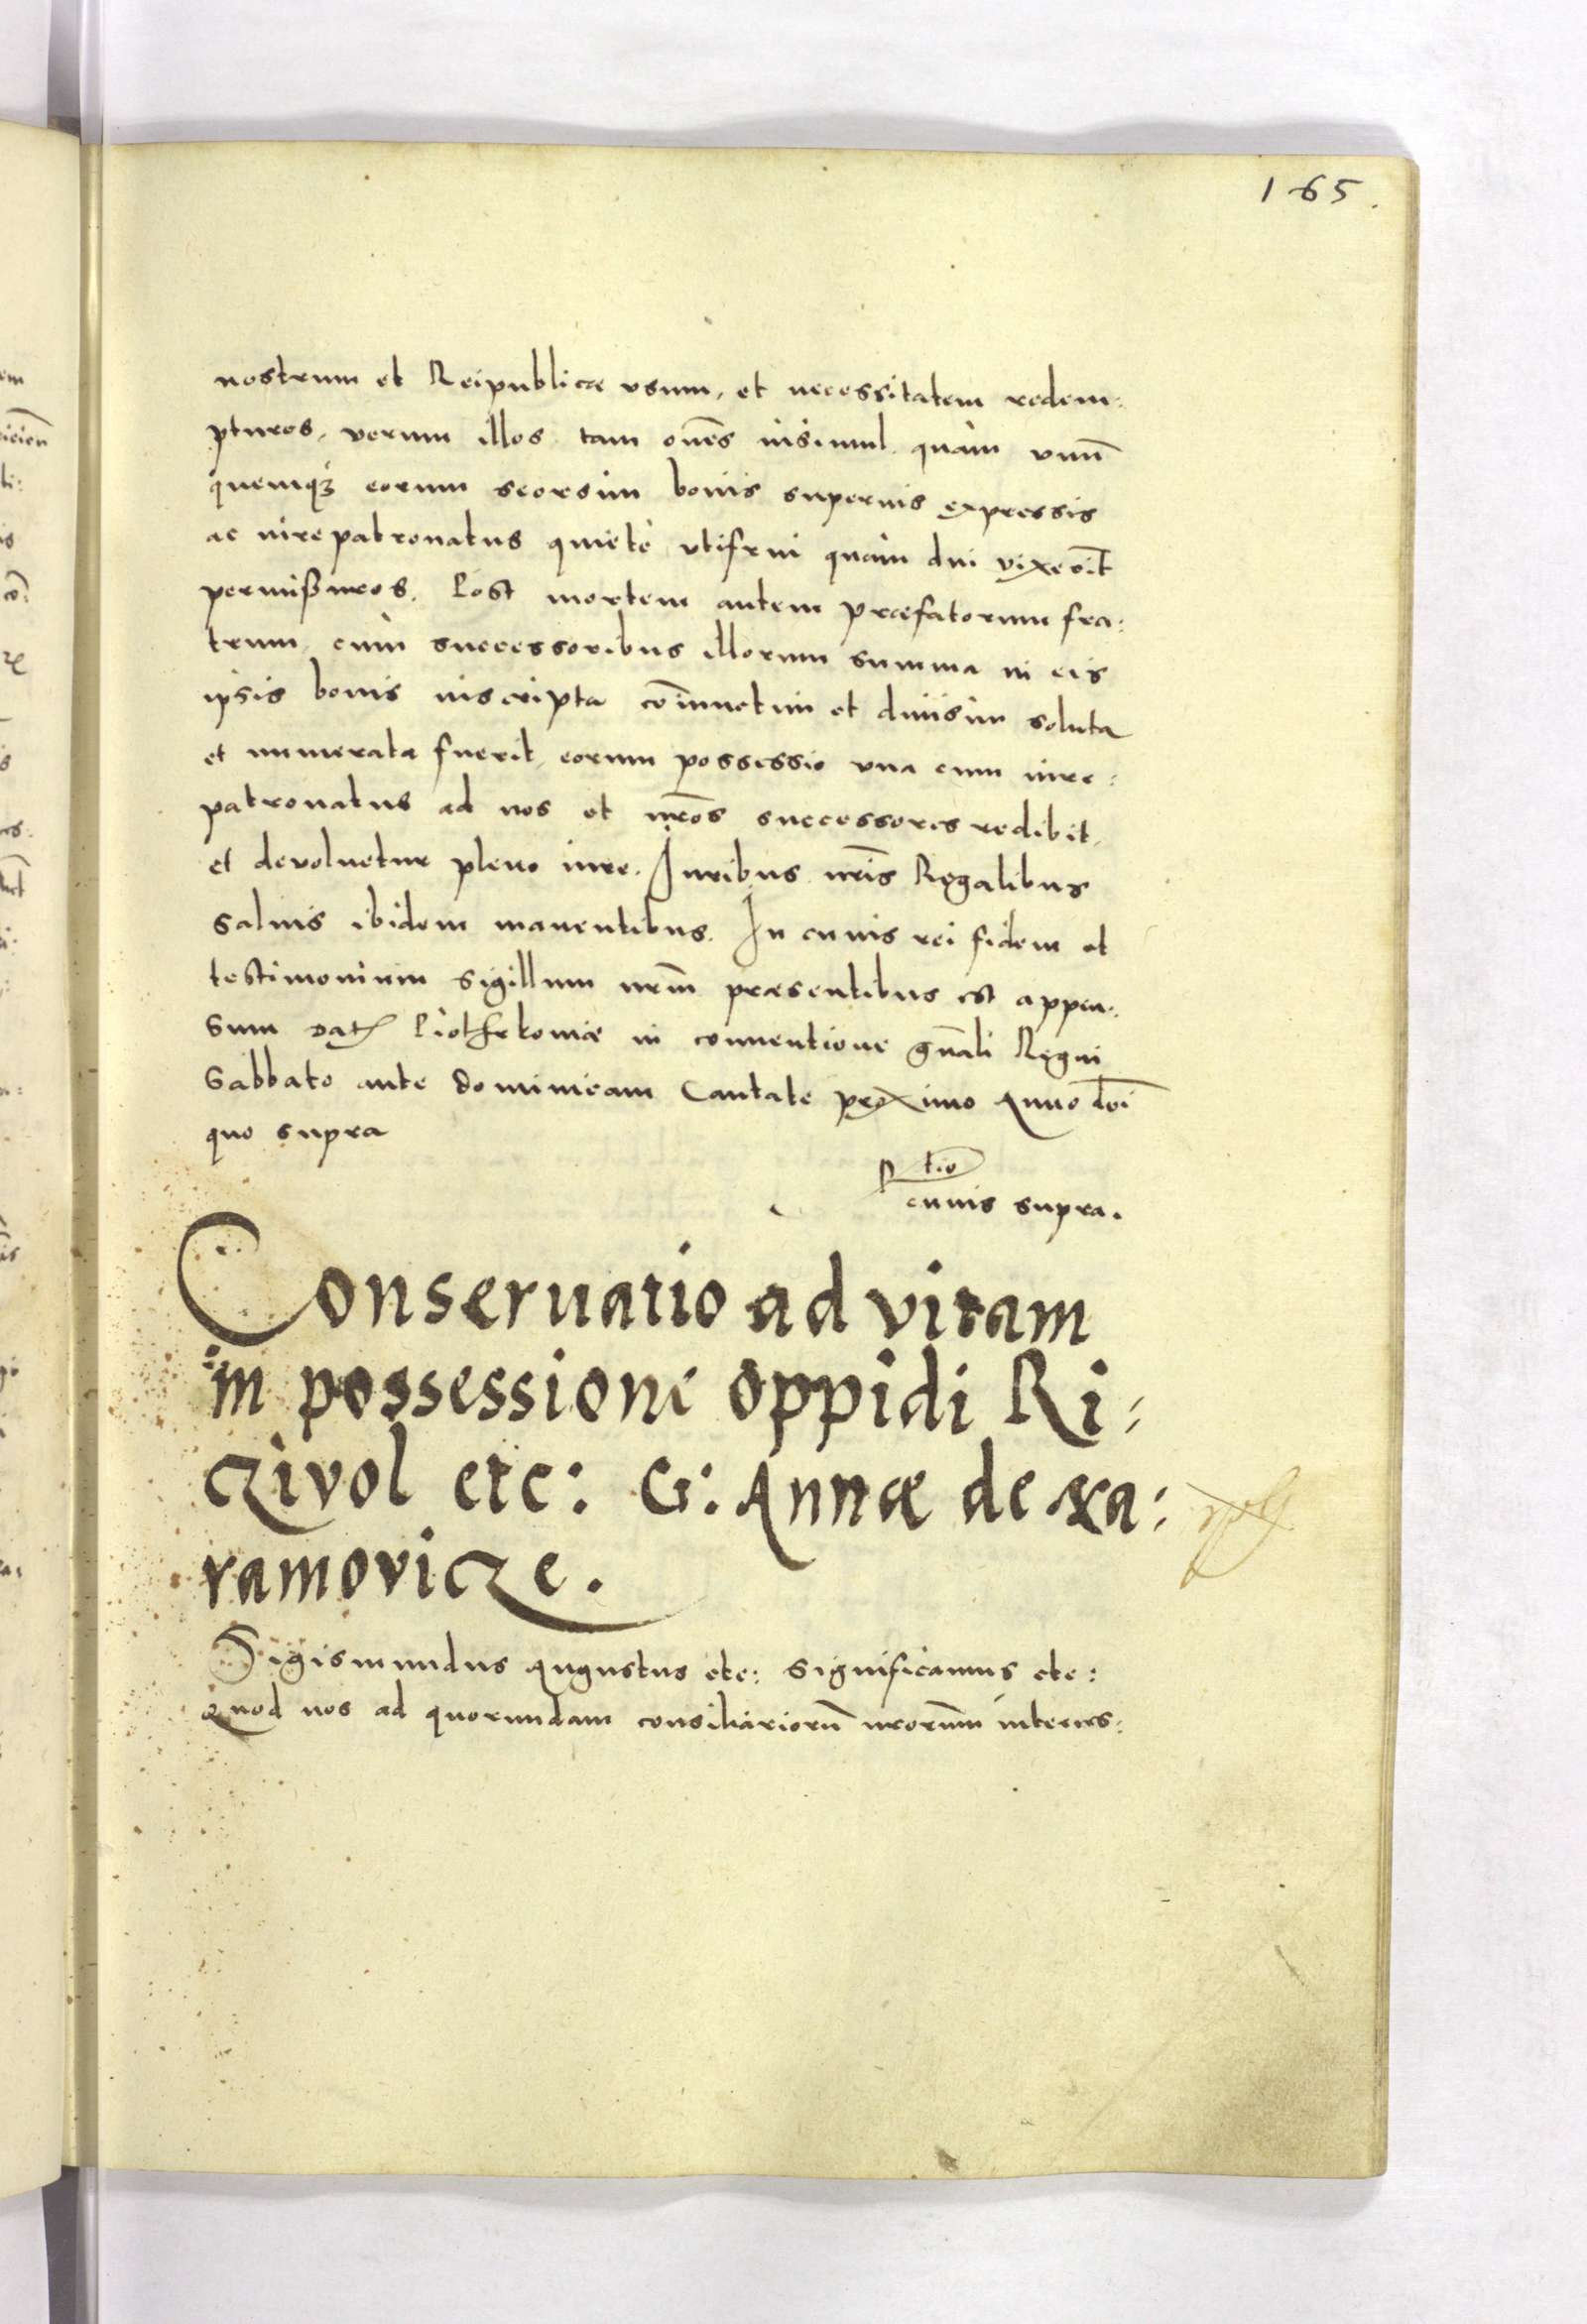 165.
nostrum et Reipublicæ vsum, et necessitatem redem:
pturos, verum illos tam om̄es insimul quàm vnū
quemqȝ eorum seorsim bonis supernis expressis
ac iure patronatus quietè vtifrui quàm diu vixeri͞t
permiſsuros. Post mortem autem præfatorum fra:
trum, cum successoribus illorum summa in eis
ipsis bonis inscripta cōiunctim et diuisim soluta
et numerata fuerit, eorum possessio vna cum iure:
patronatus ad nos et nr̄os successores redibit,
et devoluetur pleno iure. Juribus nr̄is Regalibus
saluis ibidem manentibus. In cuius rei fidem et
testimonium sigillum nrm̄ præsentibus est appen:
sum Datꝭ Piotrkouiæ in conuentione gn̄ali Regni
Sabbato ante dominicam Cantate proximo Anno do͞i
quo supra
Rtio
cuius supra.
Conseruatio ad vitam
in possessione oppidi Ri:
czivol etc: G: Annæ de xa:
ramovicze.
Sigismundus Augustus etc: Significamus etc:
Quod nos ad quorundam consiliariorū nrorum̄ interces: